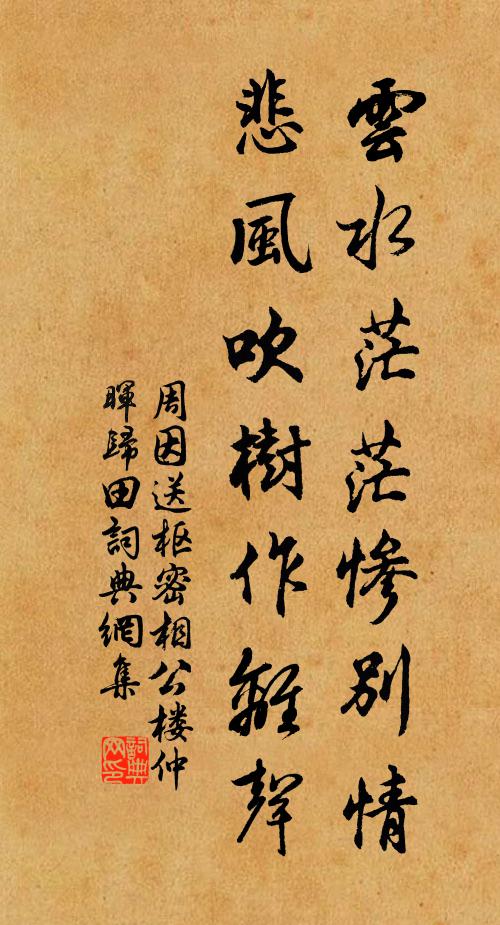 雲水茫茫慘別情
悲風吹樹作離聲
周因送枢密相公楼仲
暉歸田詞典網集
詞典
网印